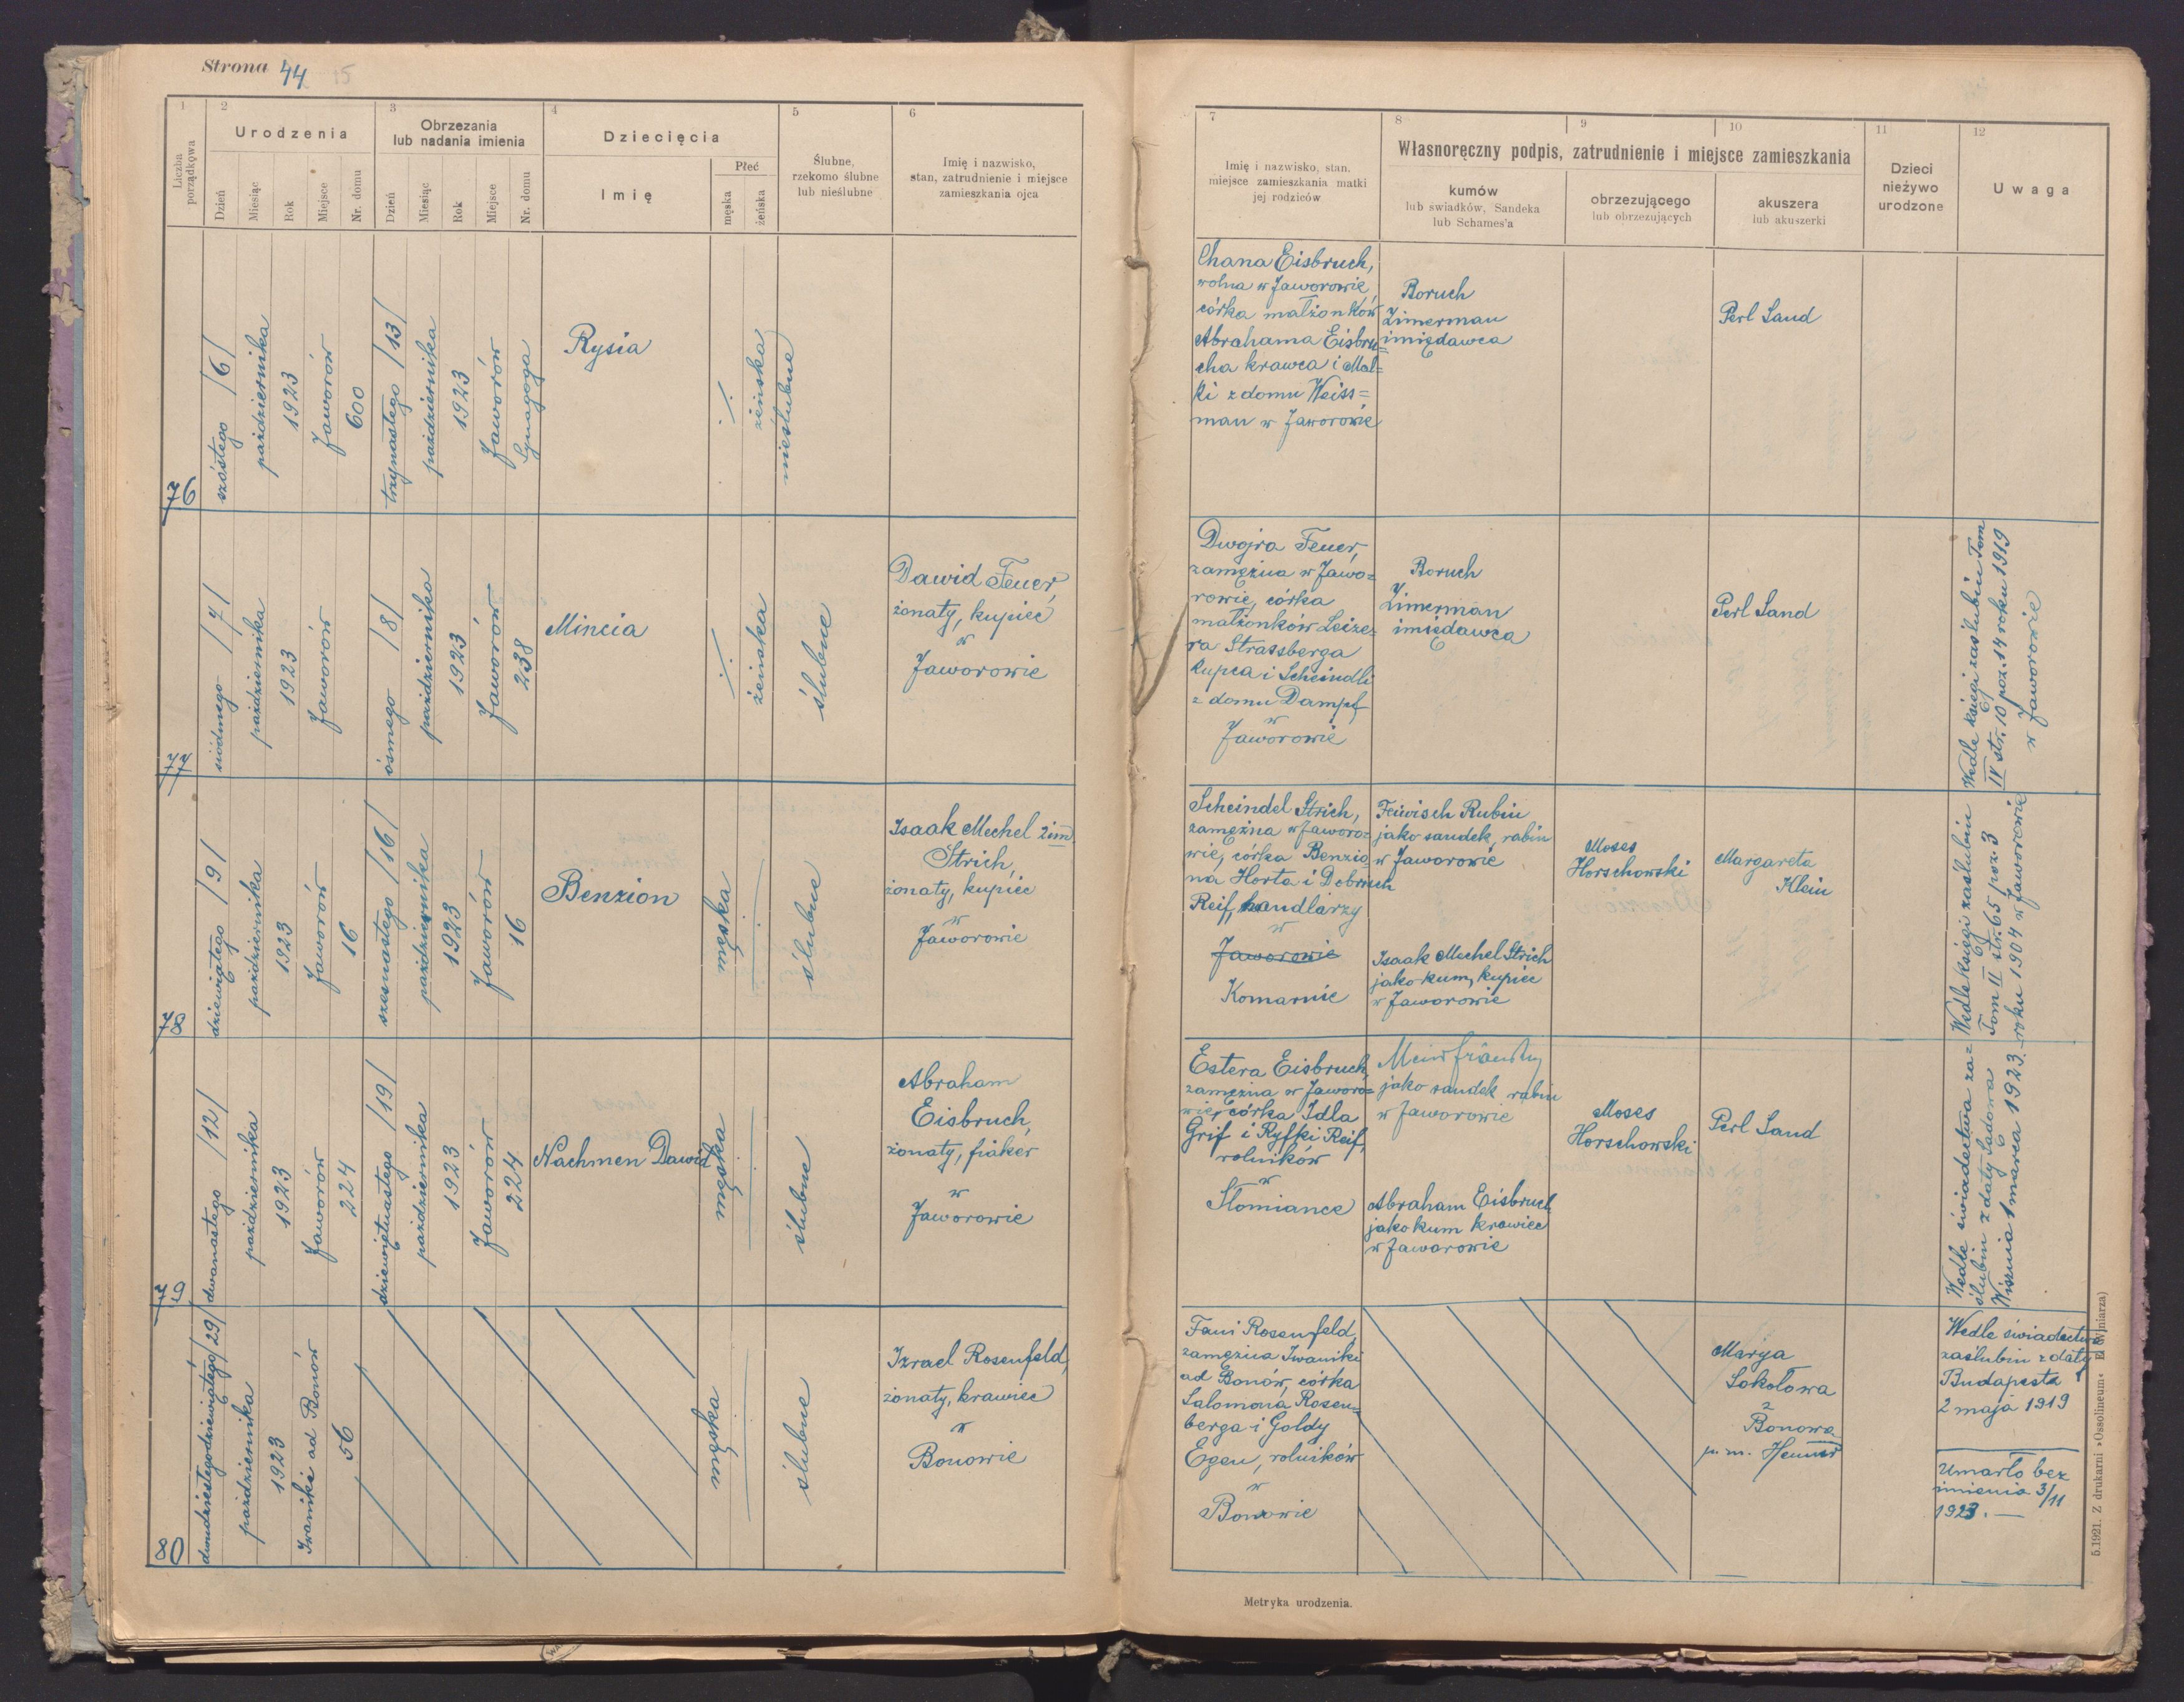 Strona 44 15
1
2
3
4
5
6
Liczba
porządkowa
Urodzenia
Obrzezania
lub nadania imienia
Dziecięcia
Ślubne,
rzekomo ślubne
lub nieślubne
Imię i nazwisko,
stan, zatrudnienie i miejsce
zamieszkania ojca
Dzień
Miesiąc
Rok
Miejsce
Nr. domu
Dzień
Miesiąc
Rok
Miejsce
Nr. domu
Imię
Płeć
męska
żeńska
7
8
9
10
11
12
Imię i nazwisko, stan,
miejsce zamieszkania matki
jej rodziców
Własnoręczny podpis, zatrudnienie i miejsce zamieszkania
kumów
lub świadków, Sandeka
lub Schames'a
obrzezującego
lub obrzezujących
akuszera
lub akuszerki
Dzieci
nieżywo
urodzone
Uwaga
76
szóstego /6/
października
1923
Jaworów
600
trzynastego /13/
października
1923
Jaworów
Synagoga
Rysia
żeńska
nieślubne
Chana Eisbruch,
wolna w Jaworowie
córka małżonków
Abrahama Eisbru=
cha krawca i Mal=
ki z domu Weiss=
man w Jaworowie
Boruch
Zimerman
imiędawca
Perl Sand
77
siódmego /7/
października
1923
Jaworów
ósmego /8/
października
1923
Jaworów
238
Mincia
żeńska
ślubne
Dawid Feuer,
żonaty, kupiec
w
Jaworowie
Dwojra Feuer,
zamężna w Jawo=
rowie, córka
małżonków Leize=
ra Strassberga
kupca i Scheindli
z domu Dampf
w
Jaworowie
Boruch
Zimerman
imiędawca
Perl Sand
Wedle księgi zaślubin Tom
IV str. 10 poz. 14 roku 1919
w Jaworowie
78
dziewiątego /9/
października
1923
Jaworów
16
szesnastego /16/
października
1923
Jaworów
16
Benzion
męska
ślubne
Isaak Mechel 2im.
Strich,
żonaty, kupiec
w
Jaworowie
Scheindel Strich,
zamężna w Jaworo=
wie, córka Benzio
na Horta i Dobrisch
Reif, handlarzy
w
Jaworowie
Komarnie
Feiwisch Rubin
jako sandek, rabin
w Jaworowie
Isaak Mechel Strich
jako kum, kupiec
w Jaworowie
Moses
Horschowski
Margareta
Klein
Wedle księgi zaślubin
Tom II str. 65 poz 3
roku 1904 w Jaworowie
79
dwanastego /12/
października
1923
Jaworów
224
dziewiętnastego /19/
października
1923
Jaworów
224
Nachmen Dawid
męska
ślubne
Abraham
Eisbruch,
żonaty, fiaker
w
Jaworowie
Estera Eisbruch,
zamężna w Jaworo=
wie, córka Idla
Grif i Ryfki Reif,
rolników
w
Słomiance
jako sandek rabin
w Jaworowie
Abraham Eisbruch
jako kum krawiec
w Jaworowie
Moses
Horschowski
Perl Sand
Wedle świadectwa za=
ślubin z daty Sadowa
Wisznia 1 marca 1923.
80
dwudziestegodziewiątego /29/
października
1923
Iwaniki ad Bonów
56
męska
ślubne
Izrael Rosenfeld,
żonaty, krawiec
w
Bonowie
Fani Rosenfeld,
zamężna Iwaniki
ad Bonów, córka
Salomona Rosen=
berga i Goldy
Egen, rolników
w
Bonowie
Marya
Sokołowa
z
Bonowa
Wedle świadectwa
zaślubin z daty
Budapesta
2 maja 1919
Umarło bez
imienia 3/11
1923. —
Metryka urodzenia.
5.1921. Z drukarni »Ossolineum«